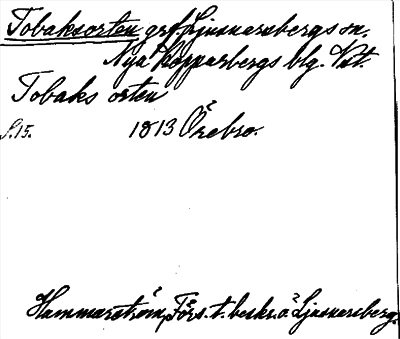 Tobaksorten grf. Ljusnarsbergs sn.
Nya Kopparbergs blg. Vst.
Tobaks orten
S. 15. 1813 Örebro.
Hammarström, Förs. t. beskr. å Ljusnarsberg.